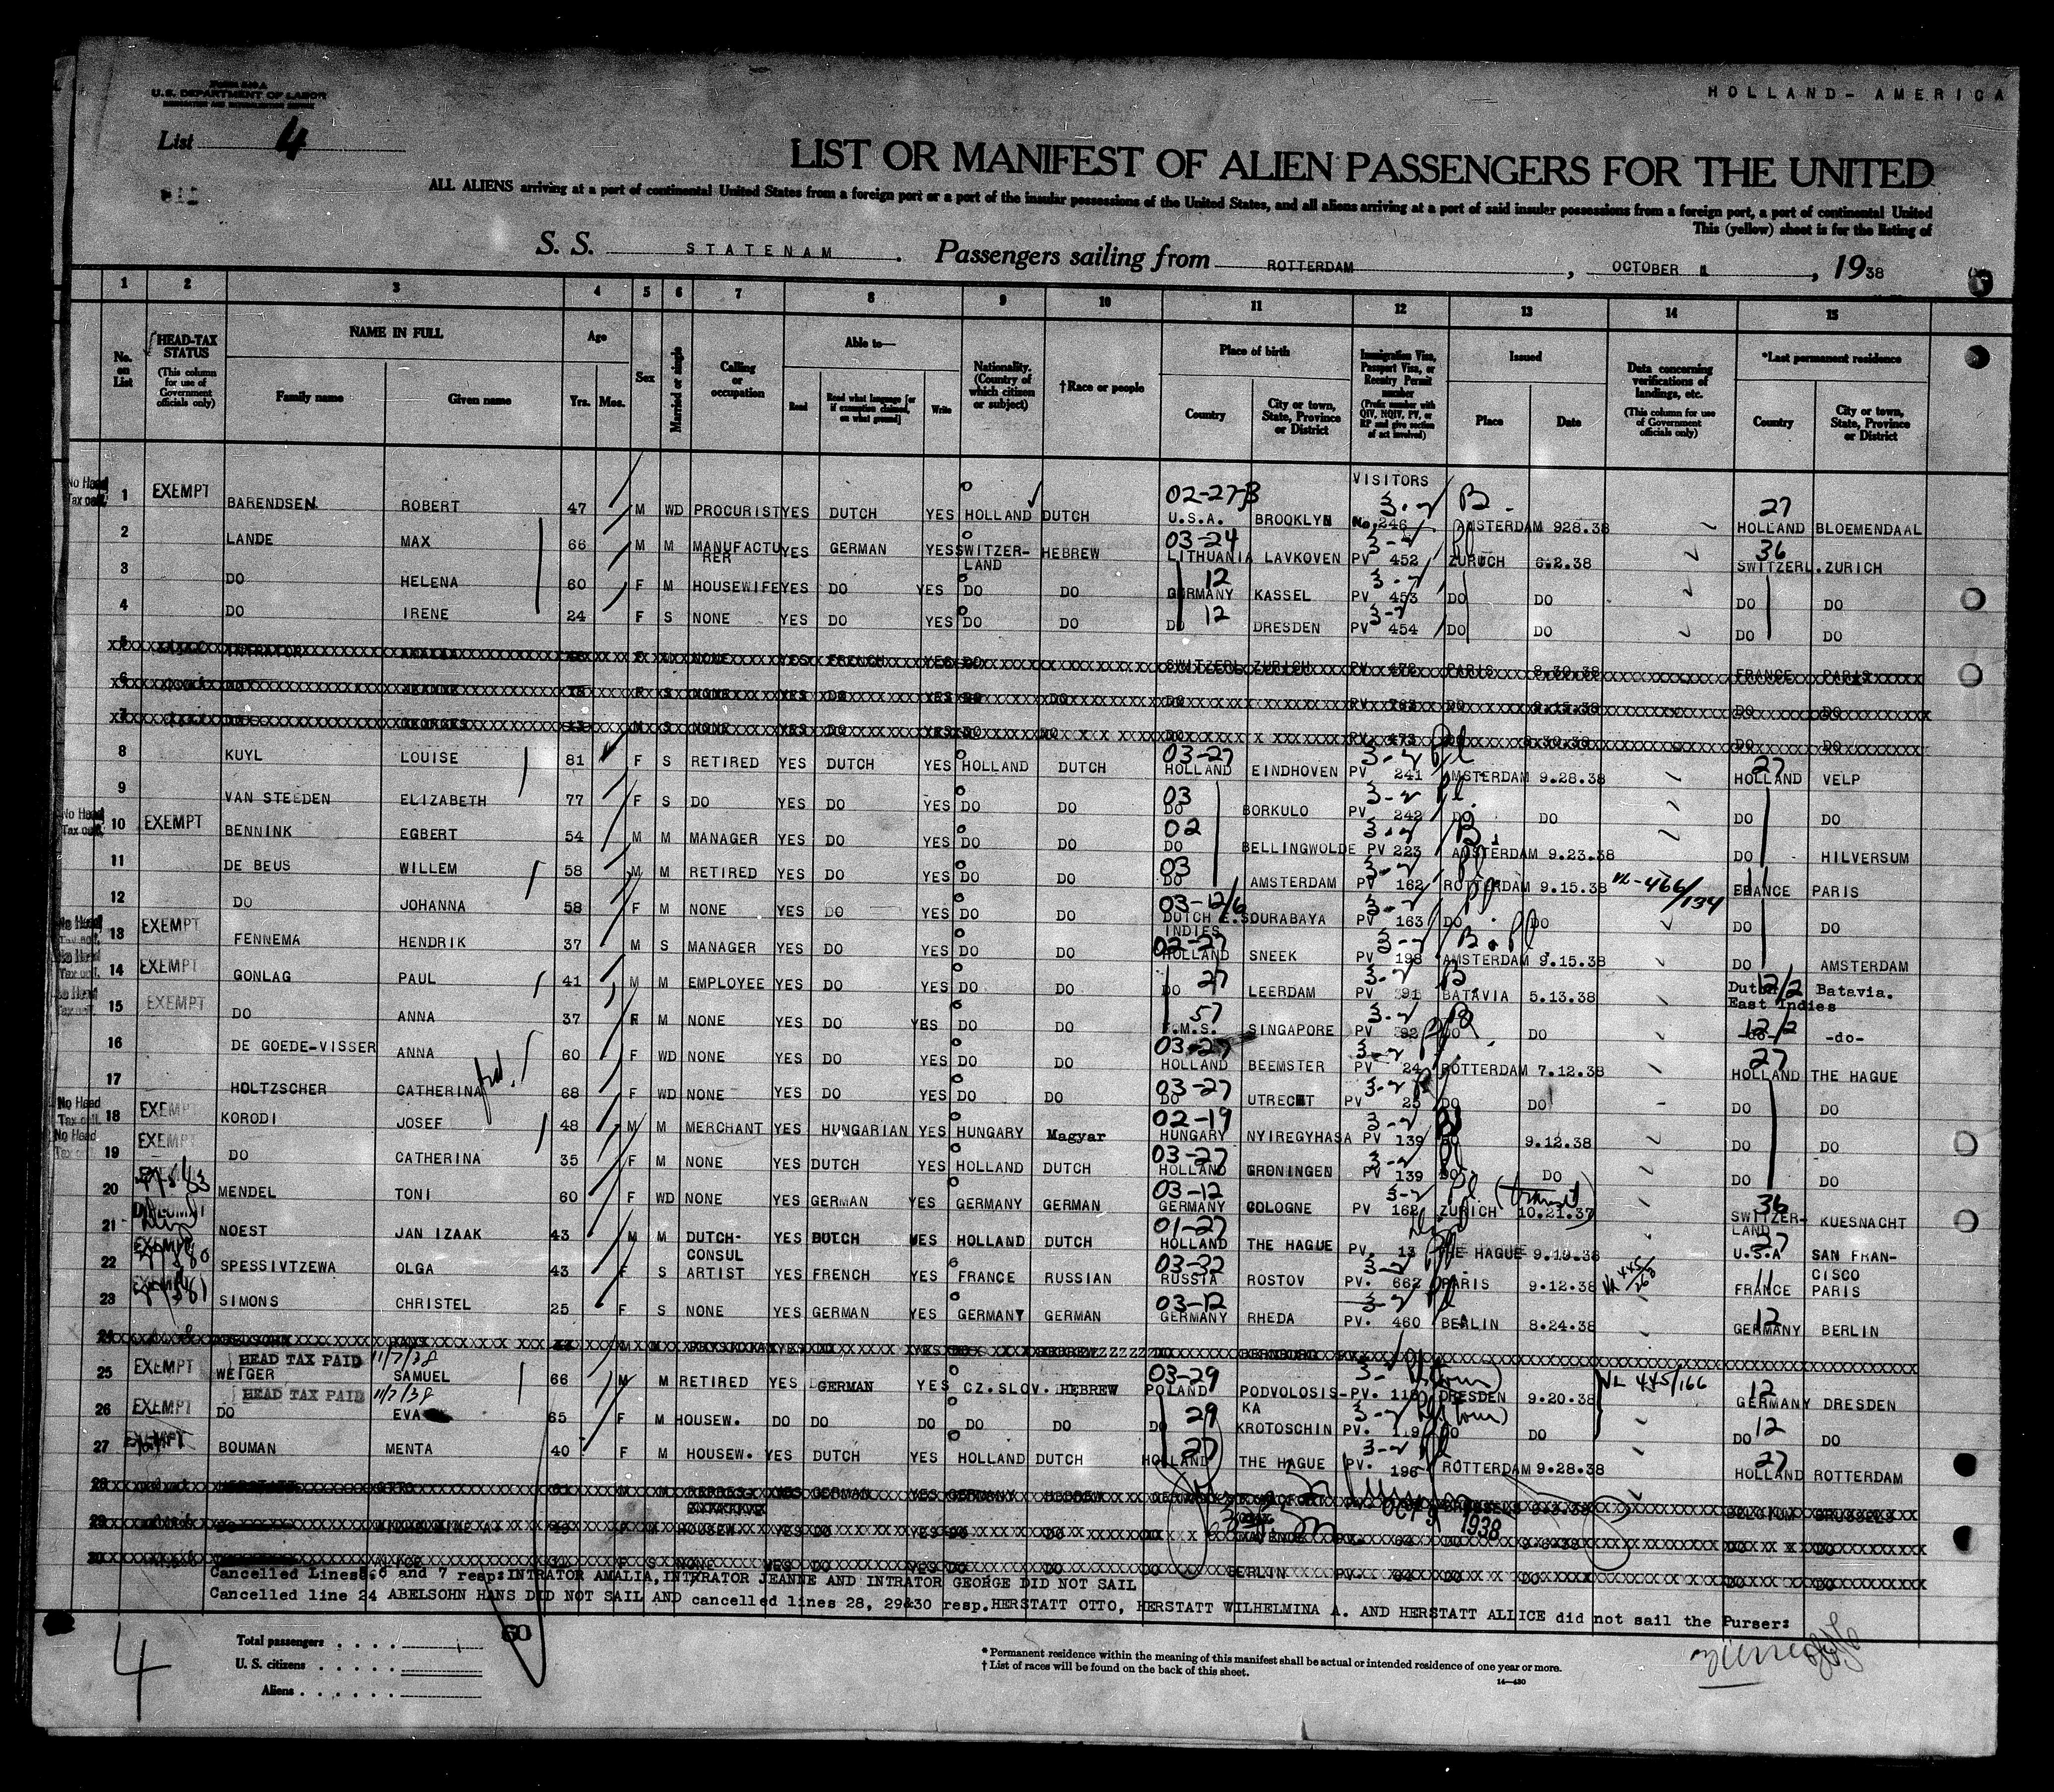 FORM 630 A
U.S. DEPARTMENT OF LABOR
IMMIGRATION AND NATURALIZATION SERVICE
HOLLAND-AMERICA
List 4
LIST OR MANIFEST OF ALIEN PASSENGERS FOR THE UNITED
ALL ALIENS arriving at a port of continental United States from a foreign port or a port of the insular possessions of the United States, and all aliens arriving at a port of said insular possessions from a foreign port, a port of continental United
This (yellow) sheet is for the listing of
S. S. STATENAM . Passengers sailing from ROTTERDAM , OCTOBER 1 , 1938
1 2 3 4 5 6 7 8 9 10 11 12 13 14 15
No. on List
HEAD-TAX STATUS (This column for use of Government officials only)
NAME IN FULL Family name Given name
Age Yrs. Mos.
Sex
Married or single
Calling or occupation
Able to— Read Read what language [or if exemption claimed, on what ground] Write
Nationality. (Country of which citizen or subject)
†Race or people
Place of birth Country City or town, State, Province or District
Immigration Visa, Passport Visa, or Reentry Permit number (Prefix number with QIV, NQIV, PV, or RP and give section of act involved)
Issued Place Date
Data concerning verifications of landings, etc. (This column for use of Government officials only)
*Last permanent residence Country City or town, State, Province or District
VISITORS
No Head Tax coll. 1 EXEMPT BARENDSEN ROBERT 47 M WD PROCURIST YES DUTCH YES HOLLAND DUTCH 02-27-B U.S.A. BROOKLYN 3-2 No. 246 B. AMSTERDAM 928.38 27 HOLLAND BLOEMENDAAL
2 LANDE MAX 66 M M MANUFACTURER YES GERMAN YES SWITZER-LAND HEBREW 03-24 LITHUANIA LAVKOVEN 3-2 PV 452 Pl ZURUCH 6.2.38 36 SWITZERL. ZURICH
3 DO HELENA 60 F M HOUSEWIFE YES DO YES DO DO 12 GERMANY KASSEL 3-2 PV 453 DO DO DO DO
4 DO IRENE 24 F S NONE YES DO YES DO DO 12 DO DRESDEN 3-2 PV 454 DO DO DO DO
5 INTRATOR AMALIA NONE YES FRENCH YES DO SWITZERL ZURICH PV 472 PARIS 8.30.38 FRANCE PARIS
6 DO JEANNE F S NONE YES DO YES DO DO DO DO DO
7 DO GEORGES M S NONE YES DO YES DO DO DO PV 473 DO DO
8 KUYL LOUISE 81 F S RETIRED YES DUTCH YES HOLLAND DUTCH 03-27 HOLLAND EINDHOVEN 3-2 PV 241 Pl AMSTERDAM 9.28.38 27 HOLLAND VELP
9 VAN STEEDEN ELIZABETH 77 F S DO YES DO YES DO DO 03 DO BORKULO 3-2 PV 242 Pl. DO DO DO DO
No Head Tax coll. 10 EXEMPT BENNINK EGBERT 54 M M MANAGER YES DO YES DO DO 02 DO BELLINGWOLDE 3-2 PV 223 B. AMSTERDAM 9.23.38 DO HILVERSUM
11 DE BEUS WILLEM 58 M M RETIRED YES DO YES DO DO 03 DO AMSTERDAM 3-2 PV 162 Pl ROTTERDAM 9.15.38 VL-466/134 FRANCE PARIS
12 DO JOHANNA 58 F M NONE YES DO YES DO DO 03-12/6 DUTCH E. INDIES SOURABAYA 3-2 PV 163 Pl DO DO DO DO
No Head Tax coll. 13 EXEMPT FENNEMA HENDRIK 37 M S MANAGER YES DO YES DO DO 02-27 HOLLAND SNEEK 3-2 PV 198 B. Pl AMSTERDAM 9.15.38 DO AMSTERDAM
No Head Tax coll. 14 EXEMPT GONLAG PAUL 41 M M EMPLOYEE YES DO YES DO DO 27 DO LEERDAM 3-2 PV 391 B BATAVIA 5.13.38 12/2 Dutch East Indies Batavia.
No Head Tax coll. 15 EXEMPT DO ANNA 37 F M NONE YES DO YES DO DO 57 F.M.S. SINGAPORE 3-2 PV 392 B DO DO 12/2 -do- -do-
16 DE GOEDE-VISSER ANNA 60 F WD NONE YES DO YES DO DO 03-27 HOLLAND BEEMSTER 3-2 PV 24 Pl. ROTTERDAM 7.12.38 27 HOLLAND THE HAGUE
17 HOLTZSCHER CATHERINA 68 F WD NONE YES DO YES DO DO 03-27 DO UTRECHT 3-2 PV 25 Pl DO DO DO DO
No Head Tax coll. 18 EXEMPT KORODI JOSEF 48 M M MERCHANT YES HUNGARIAN YES HUNGARY Magyar 02-19 HUNGARY NYIREGYHASA 3-2 PV 139 DO 9.12.38 DO DO
No Head Tax coll. 19 EXEMPT DO CATHERINA 35 F M NONE YES DUTCH YES HOLLAND DUTCH 03-27 HOLLAND GRONINGEN 3-2 PV 139 DO DO DO DO
20 MENDEL TONI 60 F WD NONE YES GERMAN YES GERMANY GERMAN 03-12 GERMANY COLOGNE 3-2 PV 162 Pl. (transit) ZURICH 10.21.37 36 SWITZER-LAND KUESNACHT
21 DIPLOMAT NOEST JAN IZAAK 43 M M DUTCH-CONSUL YES DUTCH YES HOLLAND DUTCH 01-27 HOLLAND THE HAGUE PV. 13 THE HAGUE 9.19.38 27 U.S.A SAN FRAN-CISCO
22 EXEMPT SPESSIVTZEWA OLGA 43 F S ARTIST YES FRENCH YES FRANCE RUSSIAN 03-32 RUSSIA ROSTOV PV. 662 Pl PARIS 9.12.38 VL 445/268 11 FRANCE PARIS
23 EXEMPT SIMONS CHRISTEL 25 F S NONE YES GERMAN YES GERMANY GERMAN 03-12 GERMANY RHEDA 3-2 PV. 460 Pl BERLIN 8.24.38 12 GERMANY BERLIN
24 HANS M M PHYSICIAN YES DO YES DO HEBREW DO BERNBURG
HEAD TAX PAID 11/7/38
25 EXEMPT WEIGER SAMUEL 66 M M RETIRED YES GERMAN YES CZ.SLOV. HEBREW 03-29 POLAND PODVOLOSIS-KA 3-2 PV. 118 Pl (tour) DRESDEN 9.20.38 VL 445/166 12 GERMANY DRESDEN
HEAD TAX PAID 11/7/38
26 EXEMPT DO EVA 65 F M HOUSEW. DO DO DO DO DO DO 29 KROTOSCHIN 3-2 PV. 119 Pl (tour) DO DO 12 DO DO
27 EXEMPT BOUMAN MENTA 40 F M HOUSEW. YES DUTCH YES HOLLAND DUTCH 27 HOLLAND THE HAGUE 3-2 PV. 196 Pl ROTTERDAM 9.28.38 27 HOLLAND ROTTERDAM
28 HERSTATT OTTO 61 M M REPRES. YES GERMAN YES GERMANY HEBREW GERMANY BRUSSELS BELGIUM BRUSSELS
OCT 9 1938
29 DO F M HOUSEW. YES DO YES DO DO DO MAYENCE PV. 64 DO DO DO
30 ALICE F S NONE YES DO YES DO DO DO BERLIN PV. 64 DO DO DO DO
Cancelled Lines5.6 and 7 resp:INTRATOR AMALIA,INTRRATOR JEANNE AND INTRATOR GEORGE DID NOT SAIL
Cancelled line 24 ABELSOHN HANS DID NOT SAIL AND cancelled lines 28, 29&30 resp.HERSTATT OTTO, HERSTATT WILHELMINA A. AND HERSTATT ALLICE did not sail the Purser:
4
Total passengers . . . .
60
U. S. citizens . . . . .
Aliens . . . . . .
* Permanent residence within the meaning of this manifest shall be actual or intended residence of one year or more.
† List of races will be found on the back of this sheet.
14—430